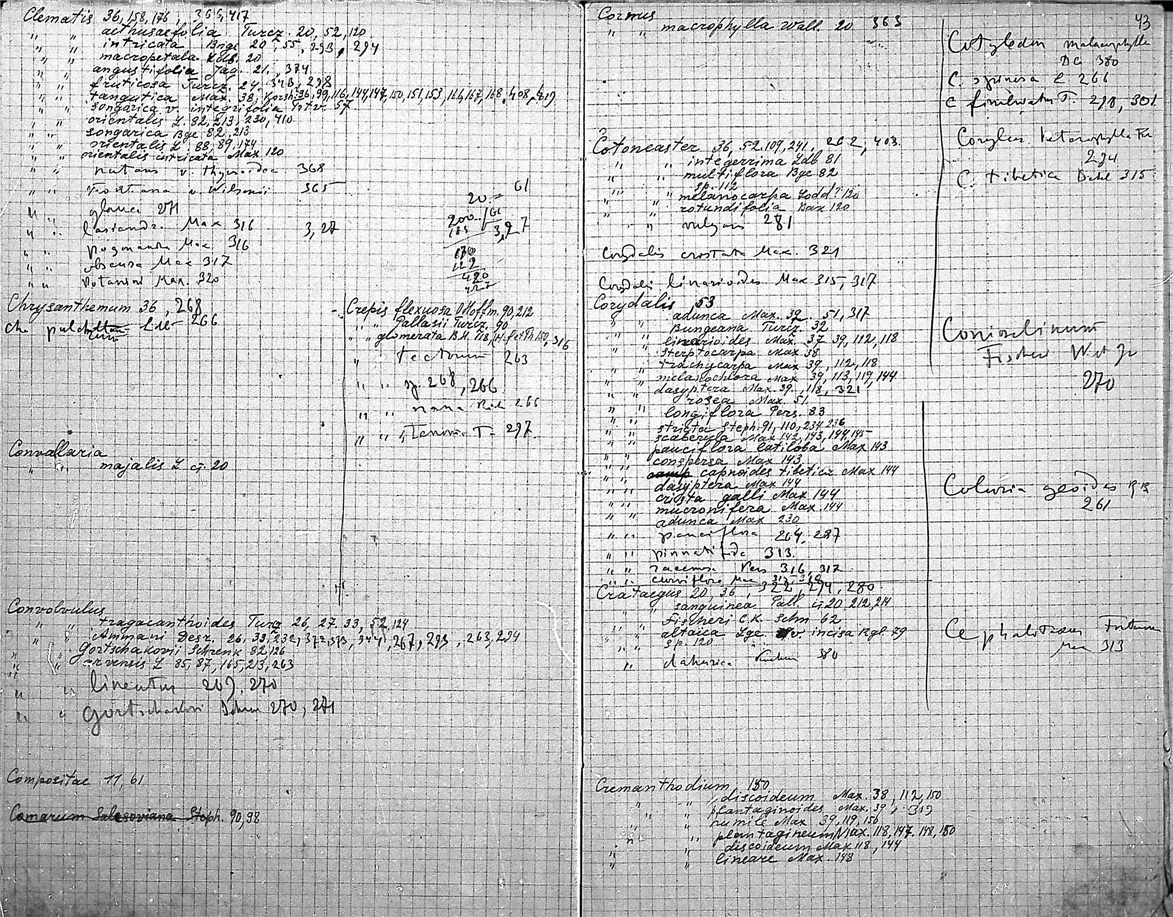 Clematis 36, 158, 176, 365, 417
" " aethusaefolia Turcz. 20, 52, 120
" " intricata Bnge 20, 55, 293, 294
" " macropetala Ldb. 20
" " angustifolia Jaq. 21, 374
" " fruticosa Turcz. 27, 298
" " tangutica Max. 38, Korsh. 36, 99, 116, 144, 147, 150, 151, 153, 166, 167, 168, 408, 419
" " songarica v. integrifolia 57
" " orientalis L. 82, 213, 230, 410
" " songarica Bge 82, 213
" " orientalis L. 88, 89, 174
" " orientalis intricata Max 120
" " nutans v. thyrsoidea 368
" " montana v. Wilsonii 365
" " glauca 271
" " Max 316
" " Max. 316
" " obscura Max 317
" " Potanini Max. 320
61
20
3,27
Chrysanthemum 36, 268
Ch. pulchellum 266
Crepis flexuosa 90, 212
" " Pallasii Turcz. 90
" " glomerata 118, 316
" " tectorum 263
" " sp. 268, 266
" " nana 266
" " T. 297
Convallaria
" " majalis L. 20
Convolvulus
" " tragacanthoides Turcz 26, 27, 33, 52, 124
" " Ammani Desr. 26, 33, 232, 372, 373, 344, 267, 293, 263, 294
" " Gortschakovii Schrenk 82, 126
" " arvensis L 85, 87, 165, 213, 263
" " lineatus 269, 270
" " Gortschakovi Schren 270, 271
Compositae 11, 61
Comarum Salesoviana Steph. 90, 98
Cornus
" " macrophylla Wall. 20 363
Cotoneaster 36, 52, 109, 241, 262, 403
" " integerrima Ldb 81
" " multiflora Bge 82
" " sp. 112
" " melanocarpa Lodd? 120
" " rotundifolia 120
" " vulgaris 281
Corydalis crostata Max. 321
Corydalis linarioides Max 315, 317
Corydalis, 53
" " adunca Max. 39, 51, 317
" " Bungeana Turcz. 32
" " linarioides Max. 37, 39, 112, 118
" " streptocarpa Max 38
" " trachycarpa Max 39, 112, 118
" " melanochlora Max 39, 113, 119, 144
" " dasyptera Max. 39, 118, 321
" " rosea Max. 51
" " longiflora Pers. 83
" " stricta Steph. 91, 110, 234, 236
" " scaberula Max 142, 143, 144, 145
" " pauciflora latiloba Max 143
" " conspersa Max 143
" " capnoides tibetica Max 144
" " dasyptera Max 144
" " crista galli Max 144
" " mucronifera Max. 144
" " adunca Max 230
" " pauciflora 264, 287
" " pinnatifida 313
" " racemosa Pers 316, 317
" " curviflora Max
Crataegus 20, 36, 322, 274, 280
" " sanguinea Pall. 20, 212, 214
" " Fischeri C.K. Schn 62
" " altaica Lge v. incisa Rgl 79
" " sp. 120
" " dahurica 80
Cremanthodium 150
" " discoideum Max. 38, 112, 150
" " plantaginoides Max. 39, 319
" " humile Max. 39, 119, 150
" " plantagineum Max. 118, 147, 148, 150
" " discoideum Max 118, 144
" " lineare Max. 148
43
Cotyledon malacophylla
DC 380
C. spinosa L 266
C fimbriatum T. 298, 301
Corylus heterophylla
234
C. tibetica Batal 315
Conioselinum
Fischeri W et Gr
270
Coluria geoides
261
Cephalotaxus Fortunei
Max 313